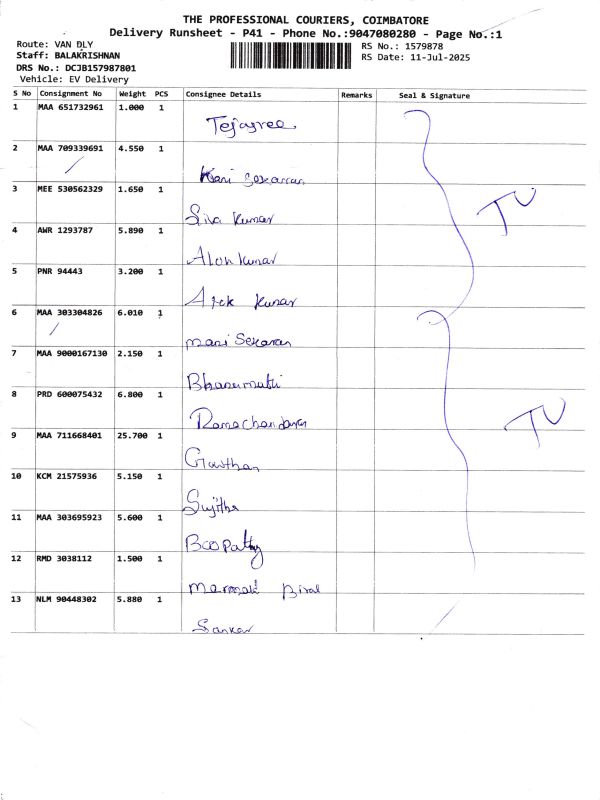 THE PROFESSIONAL COURIERS, COIMBATORE
Delivery Runsheet - P41 - Phone No.:9047080280 - Page No.:1
Route: VAN DLY
RS No.: 1579878
Staff: BALAKRISHNAN
RS Date: 11-Jul-2025
DRS No.: DCJB157987801
Vehicle: EV Delivery
S No Consignment No Weight PCS Consignee Details Remarks Seal & Signature
1 MAA 651732961 1.000 1
Tejasree
2 MAA 709339691 4.550 1
Mani Sekaran
3 MEE 530562329 1.650 1
Siva Kumar
4 AWR 1293787 5.890 1
Alon Kumar
5 PNR 94443 3.200 1
Kumar
6 MAA 303304826 6.010 1
mani Sekaran
7 MAA 9000167130 2.150 1
Bhanumathi
8 PRD 600075432 6.800 1
Ramachandran
9 MAA 711668401 25.700 1
Gowthan
10 KCM 21575936 5.150 1
Sujitha
11 MAA 303695923 5.600 1
Boopathy
12 RMD 3038112 1.500 1
13 NLM 90448302 5.880 1
Sankar
TU
TU